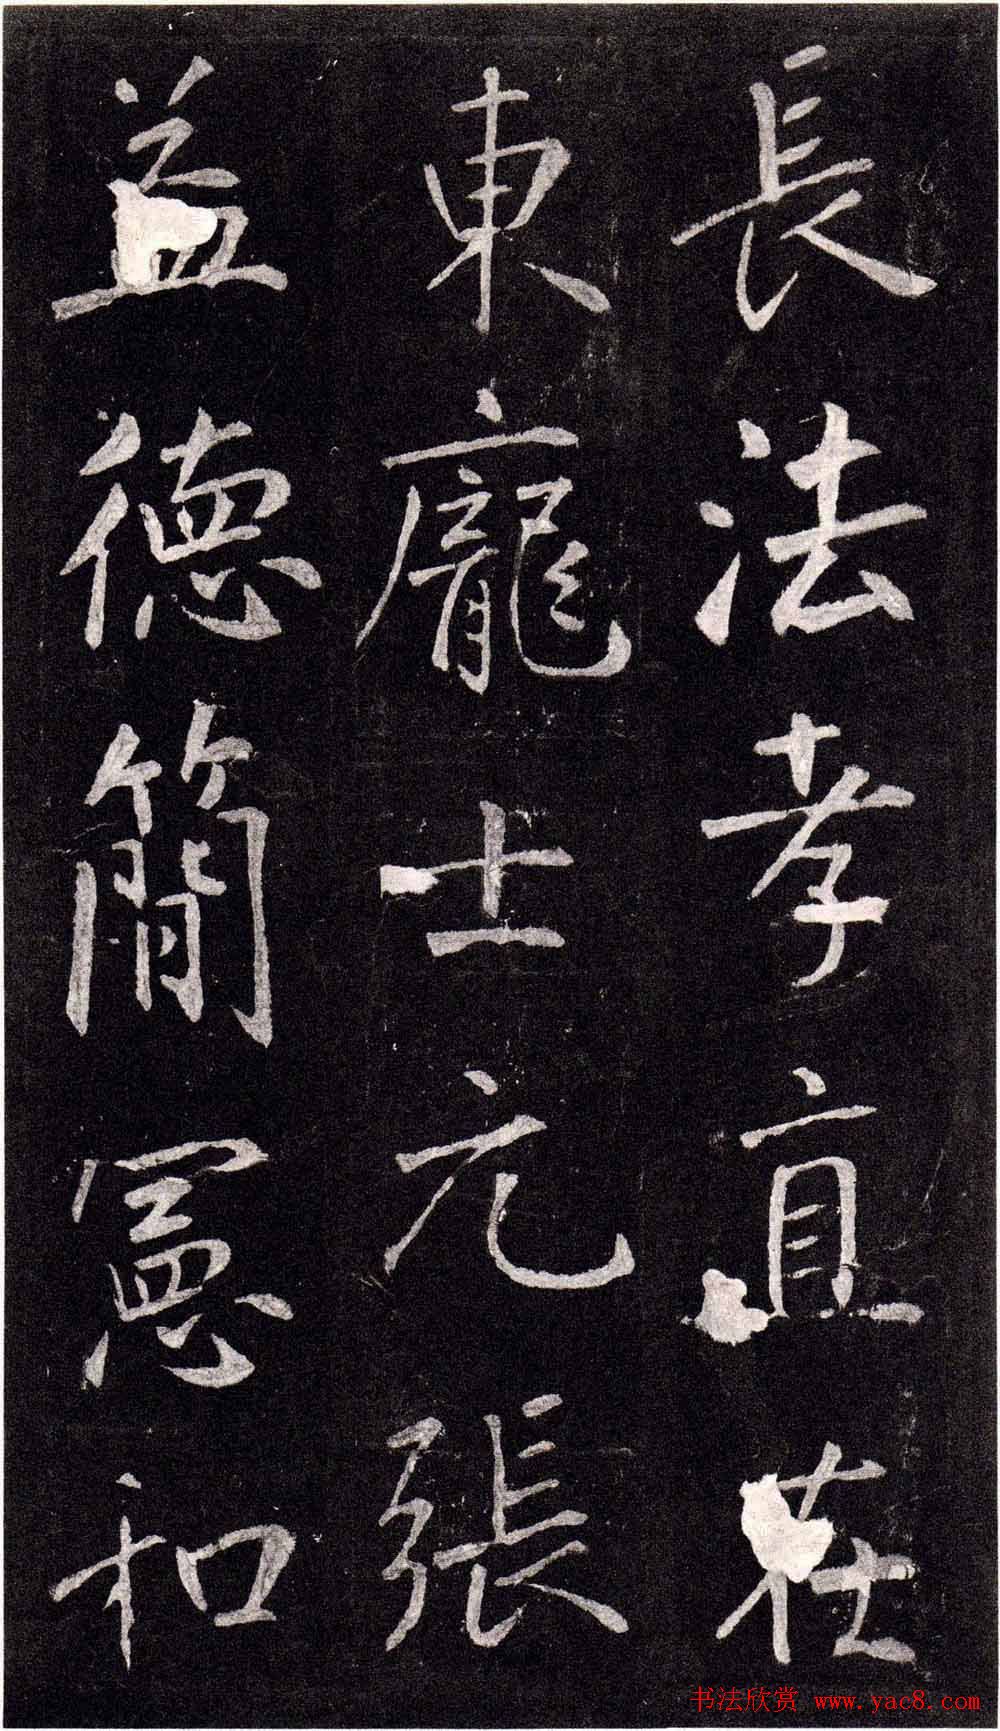 長法孝直在
東龐士元張
益德簡憲和
书法欣赏 www.yac8.com